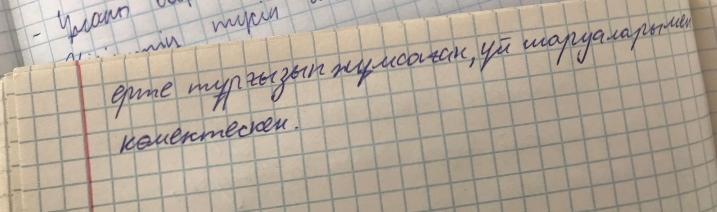 - Ұланы
түсін
ерте тұрғызып жұмсаған, үй шаруаларымен
көмектескен.